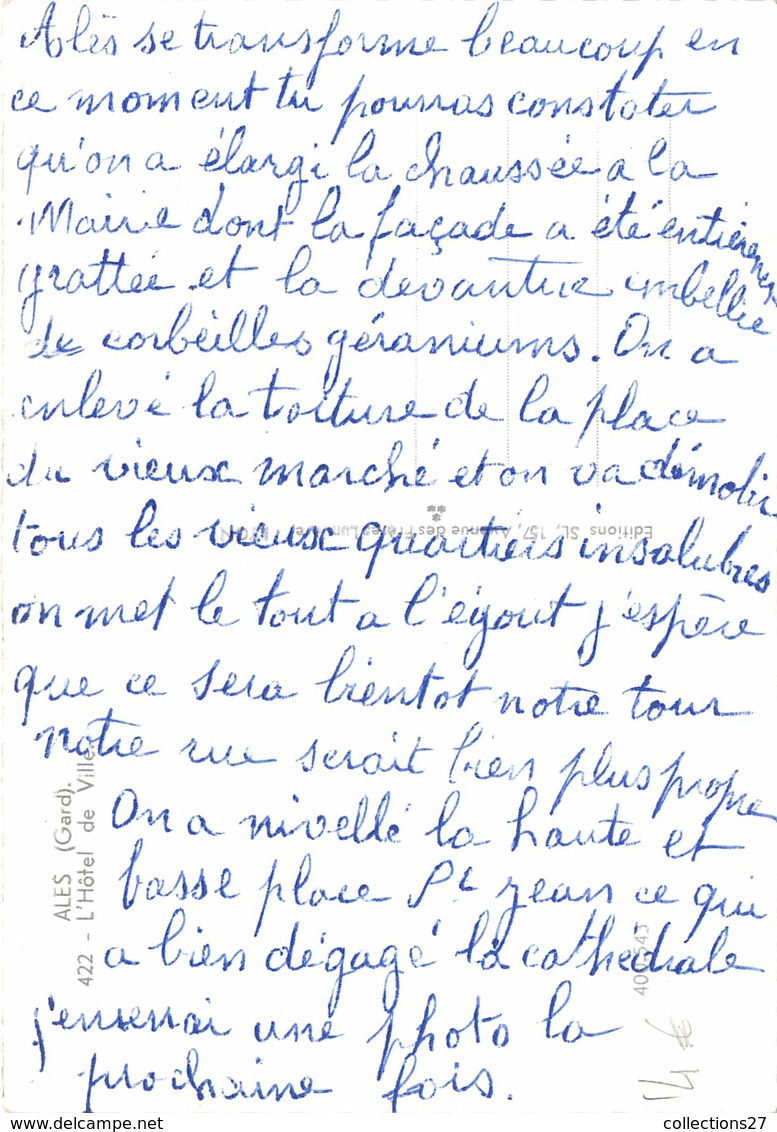 Alès se transforme beaucoup en
ce moment tu pourras constater
qu'on a élargi la chaussée a la
Mairie dont la façade a été entièrement
grattée et la devanture embellie
de corbeilles géraniums. On a
enlevé la toiture de la place
du vieux marché et on va démolir
tous les vieux quartiers insalubres
on met le tout a l'égout j'espère
que ce sera bientot notre tour
notre rue serait bien plus propre
On a nivellé la haute et
basse place St Jean ce qui
a bien dégagé la cathedrale
j'enverrai une photo la
prochaine fois.
ALES (Gard).
422 - L'Hôtel de Ville.
Editions SL, 157, Avenue des Frères Lumière, LYON
14 €
collections27